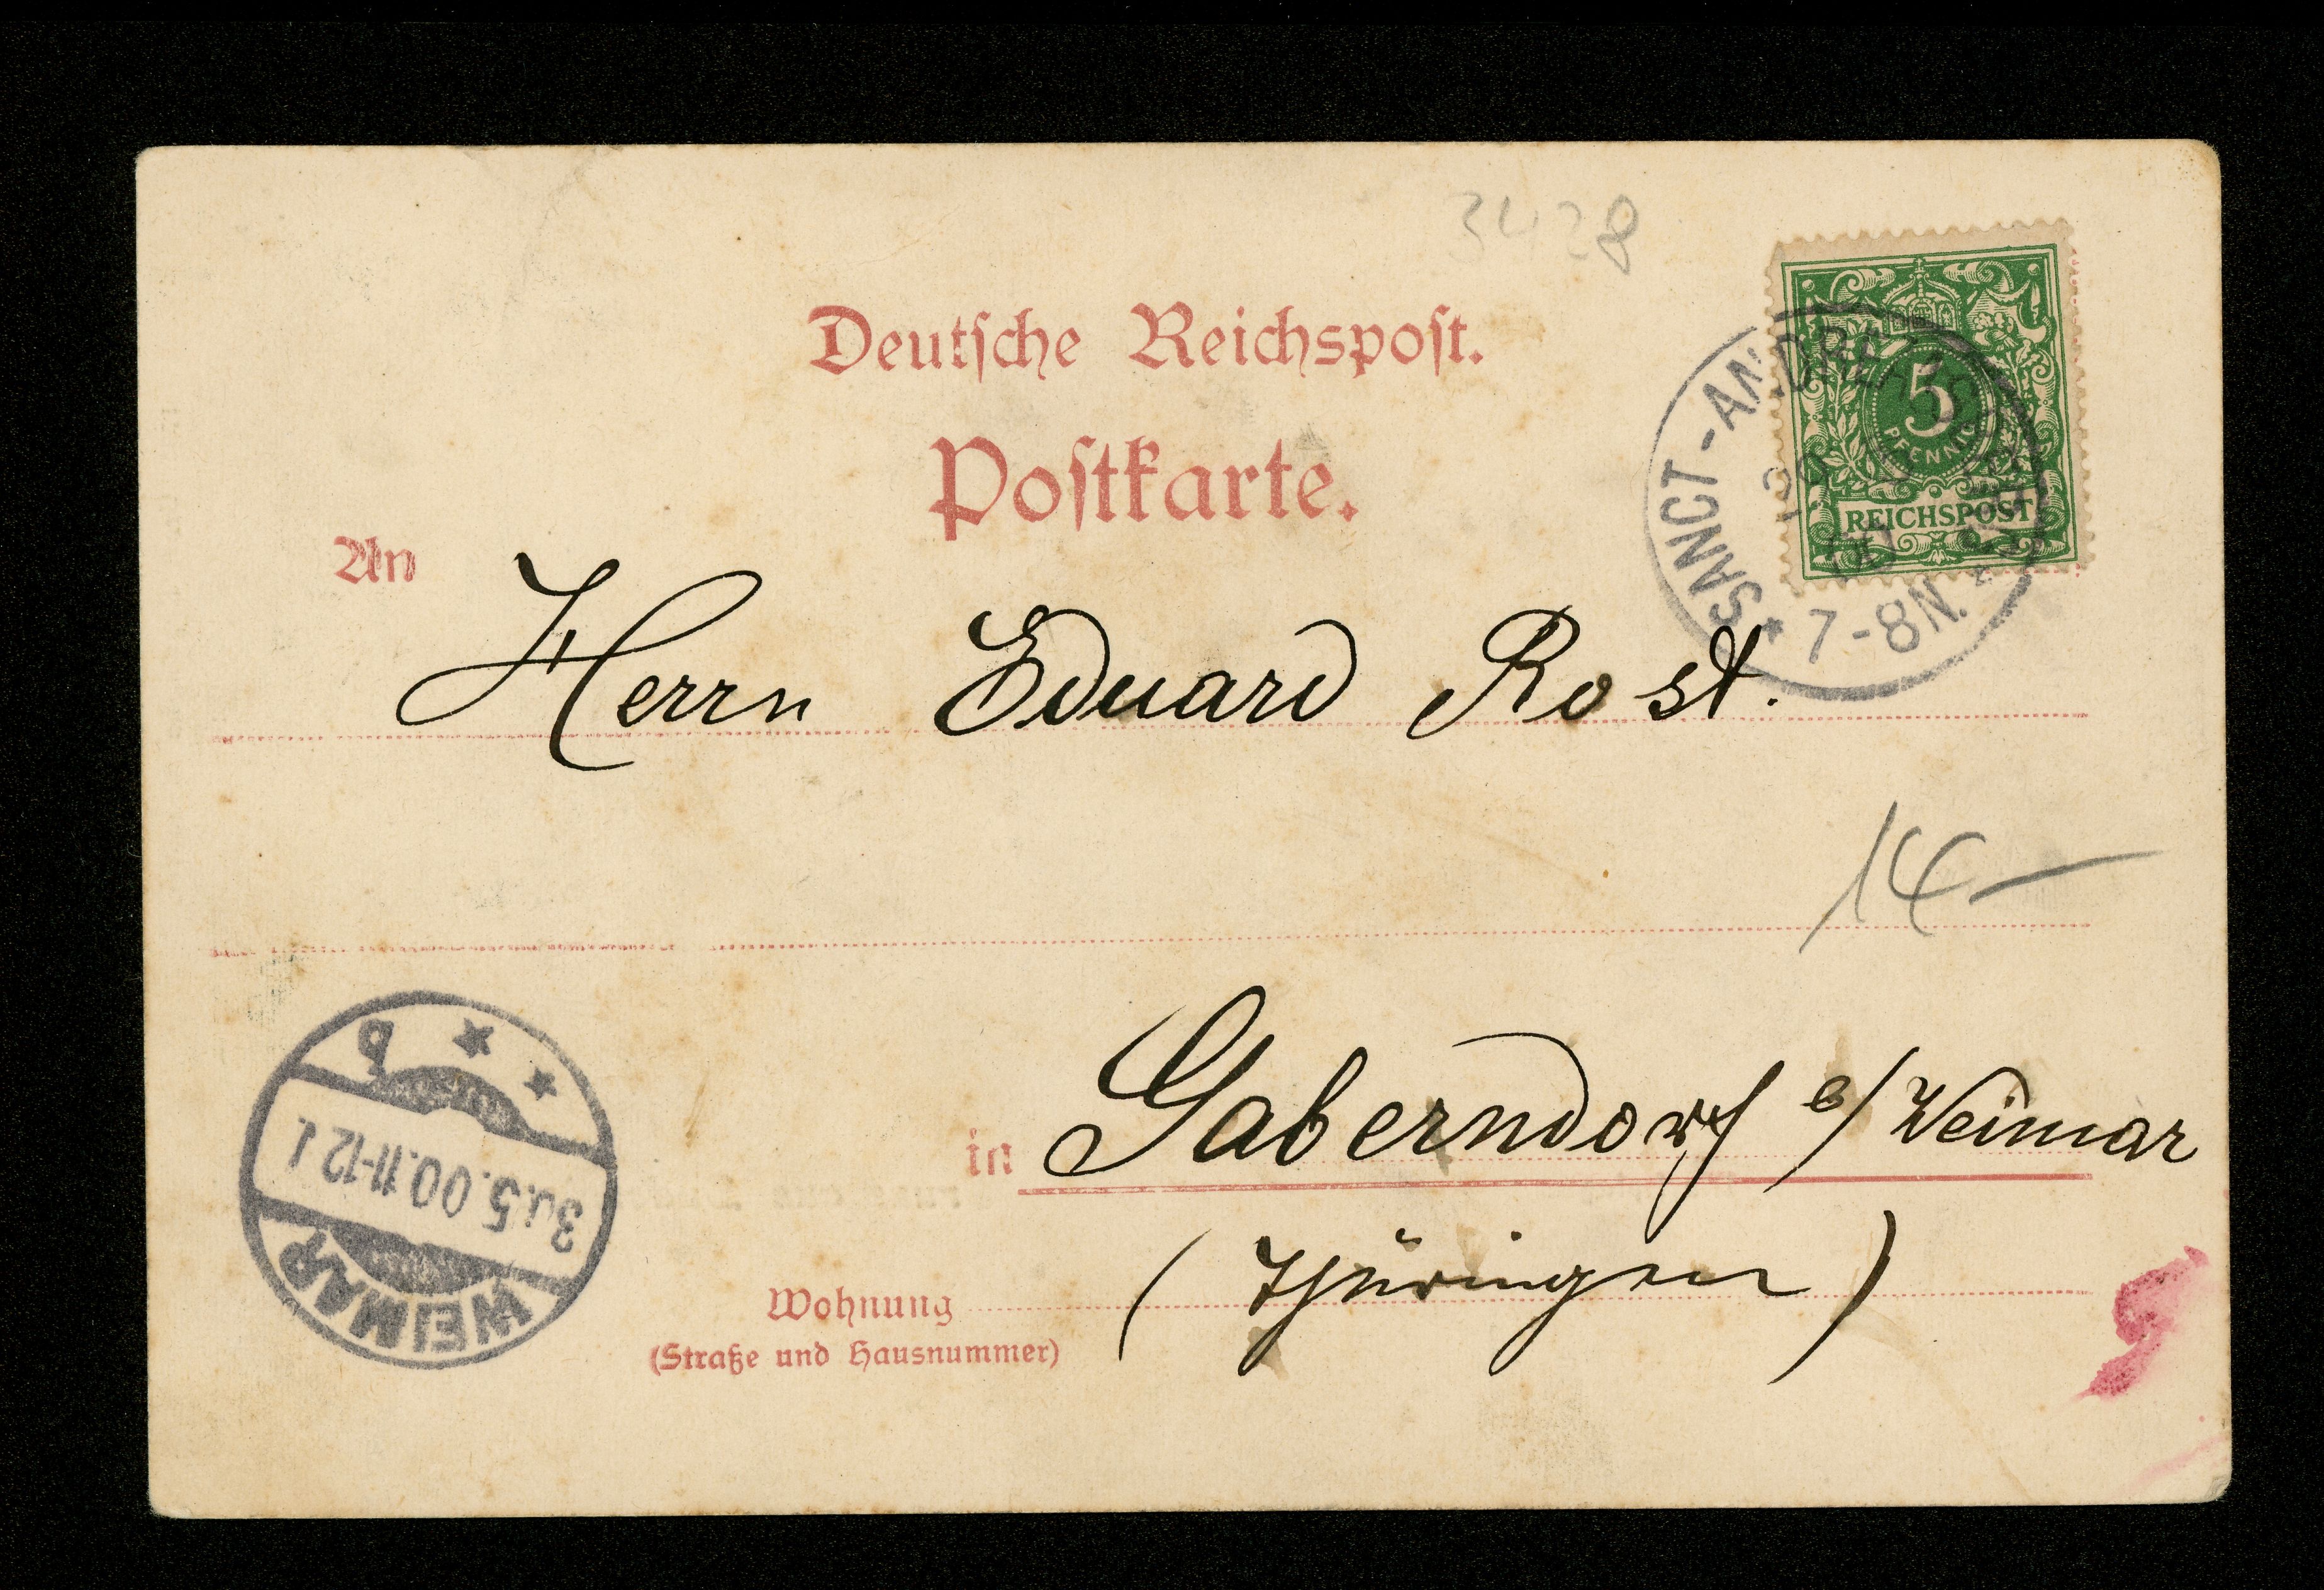 3428
Deutsche Reichspost.
Postkarte.
5
PFENNIG
REICHSPOST
SANCT-ANDREASBERG
* 7-8N. *
An
Herrn Eduard Rost.
14-
in Gaberndorf b/Weimar
(Thüringen)
Wohnung
(Straße und Hausnummer)
WEIMAR
30.5.00.11-12